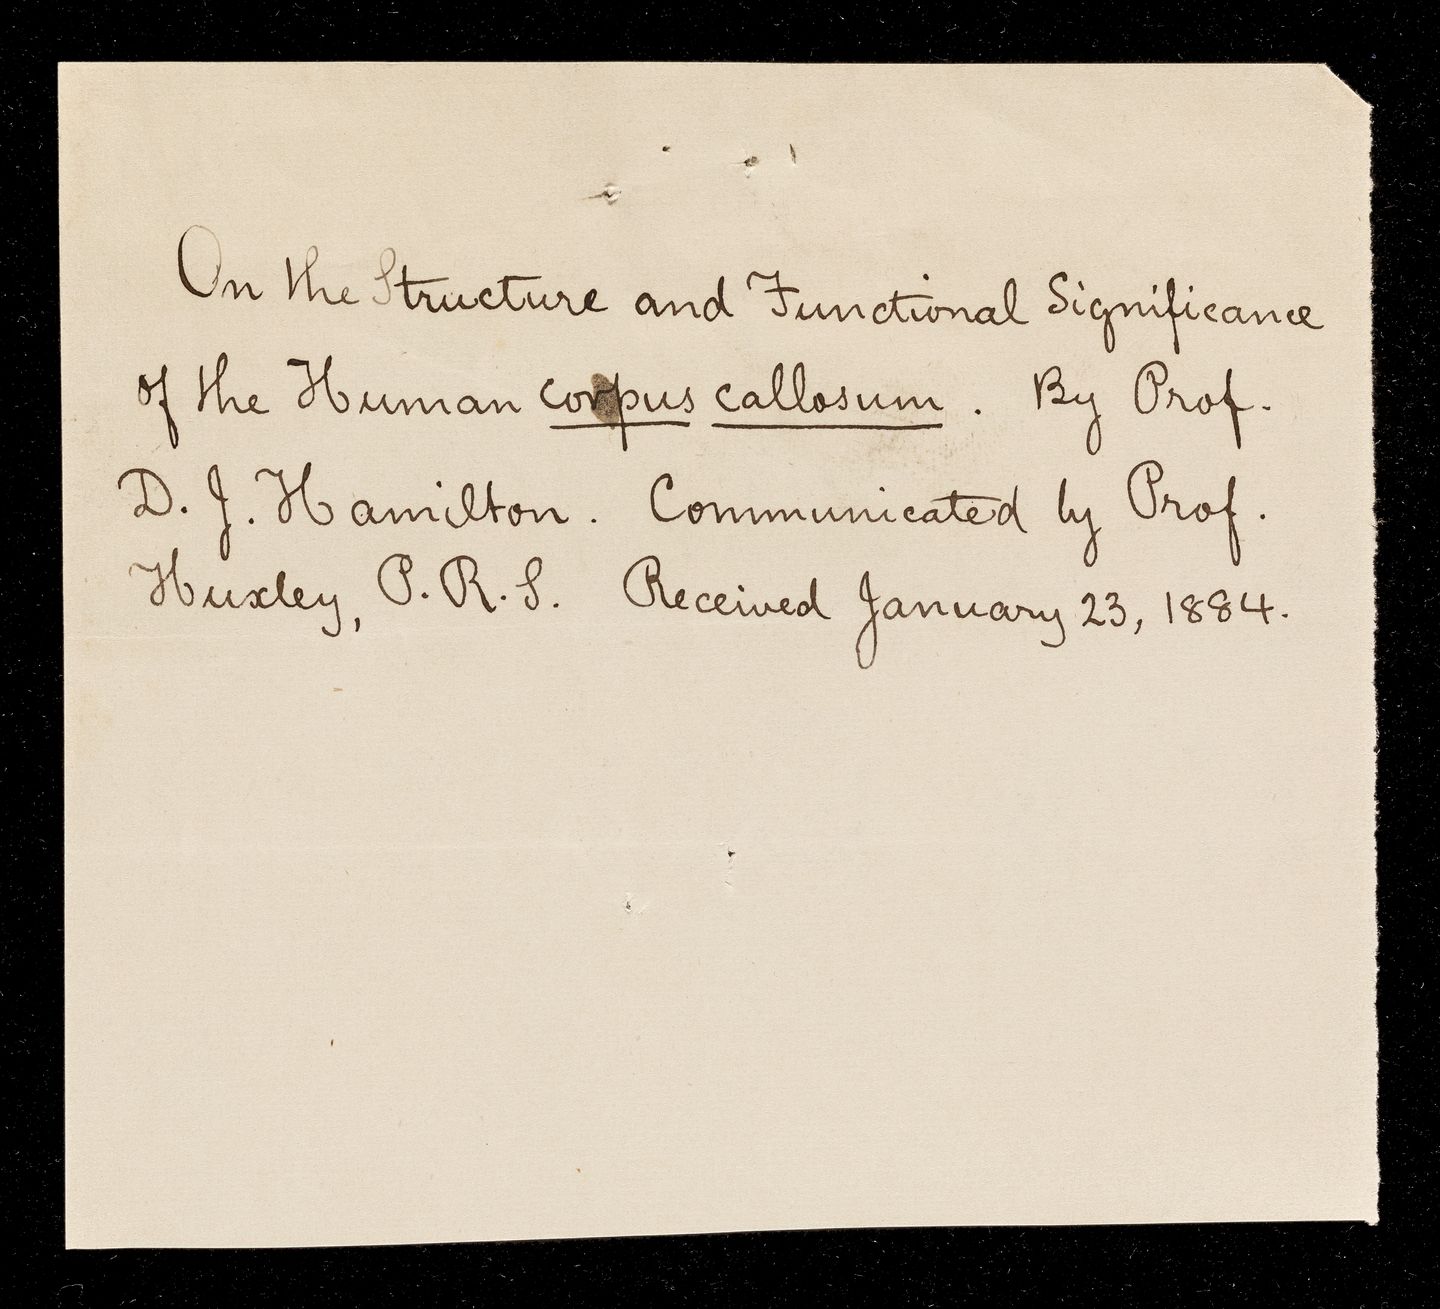 On the Structure and Functional Significance
of the Human corpus callosum. By Prof.
D. J. Hamilton. Communicated by Prof.
Huxley, P.R.S. Received January 23, 1884.